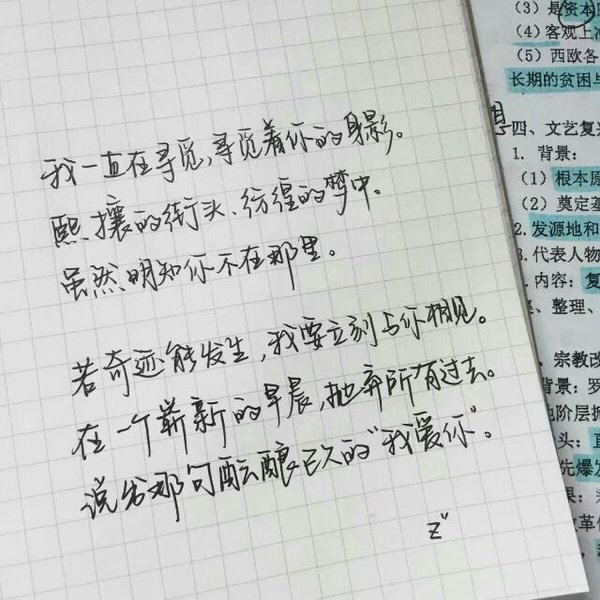 我一直在寻觅,寻觅着你的身影。
熙攘的街头、彷徨的梦中。
虽然明知你不在那里。
若奇迹能发生,我要立刻与你相见。
在一个崭新的早晨,抛弃所有过去。
说出那句酝酿已久的“我爱你”。
z"
(3)是资本
(4)客观上
(5)西欧各
长期的贫困与
四、文艺复兴
1. 背景:
(1)根本原
(2)奠定基
2.发源地和
3.代表人物
.内容:复
、整理、
、宗教改
背景:罗
地阶层拥
头:直
先爆发
果:
改革使